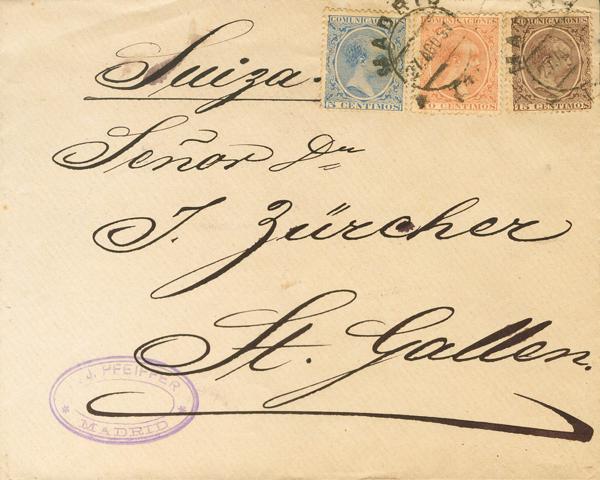 Suiza.
COMUNICACIONES
5 CENTIMOS
COMUNICACIONES
10 CENTIMOS
COMUNICACIONES
15 CENTIMOS
MADRID
MADRID
Señor Dn
J. Zürcher
St. Gallen.
J. PFEIFFER
MADRID